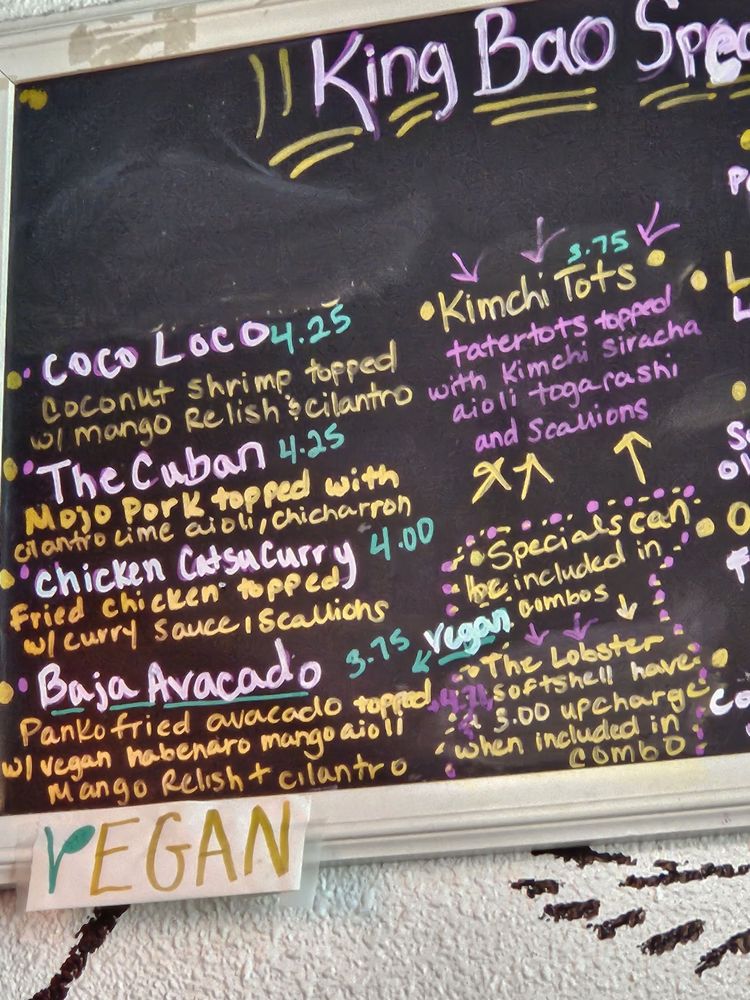 King Bao Spec
Coco Loco 4.25
Coconut shrimp topped
w/ mango Relish & cilantro
The Cuban 4.25
Mojo Pork topped with
cilantro lime aioli, chicharron
Chicken CatsuCurry 4.00
Fried chicken topped
w/ curry sauce, Scallions
Baja Avacado 3.75 vegan
Panko fried avacado topped
w/ vegan habenaro mango aioli
Mango Relish + cilantro
3.75
Kimchi Tots
tatertots topped
with Kimchi siracha
aioli togarashi
and scallions
Specials can
be included in
combos
The Lobster
softshell have
3.00 upcharge
when included in
combo
VEGAN